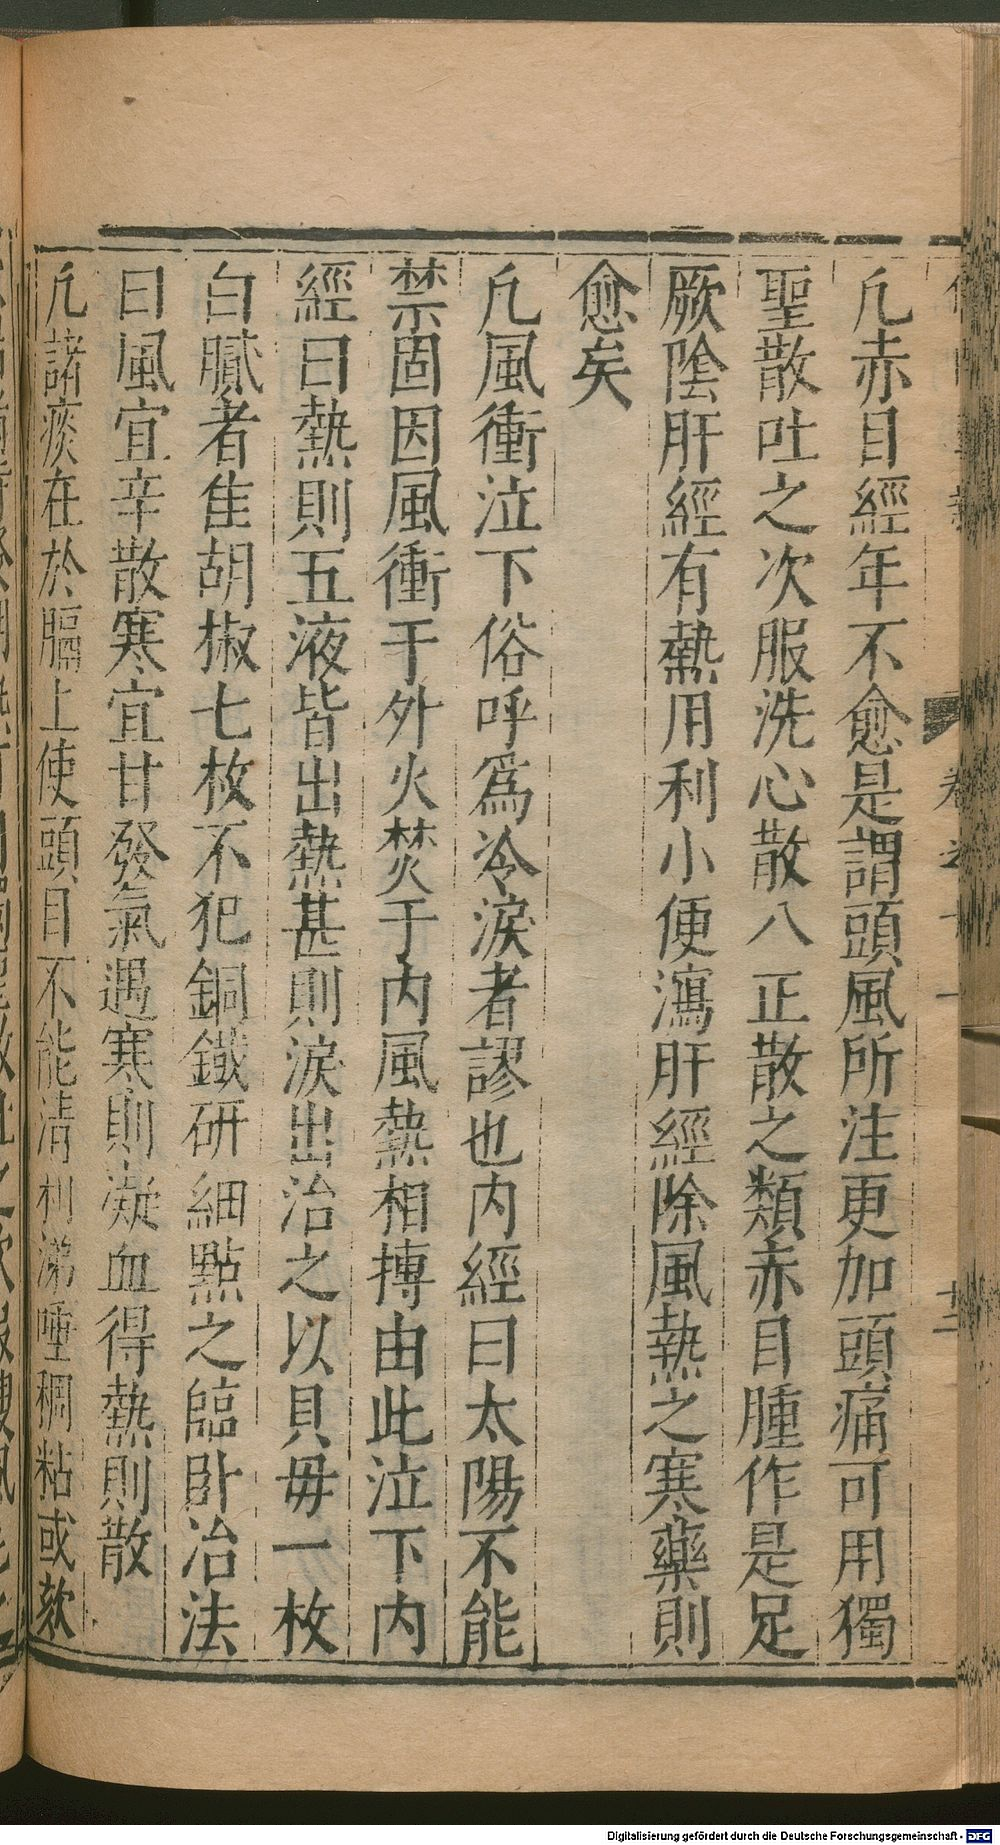 凢赤目經年不愈是謂頭風所注更加頭痛可用獨
聖散吐之次服洗心散八正散之類赤目腫作是足
厥陰肝經有熱用利小便瀉肝經除風熱之寒藥則
愈矣
凢風衝泣下俗呼爲冷淚者謬也內經曰太陽不能
禁固因風衝于外火焚于內風熱相摶由此泣下內
經曰熱則五液皆出熱甚則淚出治之以貝毋一枚
白膩者隹胡椒七枚不犯銅鐵研細點之臨臥治法
曰風宜辛散寒宜甘發氣遇寒則凝血得熱則散
凢諸痰在於膈上使頭目不能清利涕唾稠粘或欬
卷之十一
十三
Digitalisierung gefördert durch die Deutsche Forschungsgemeinschaft - DFG